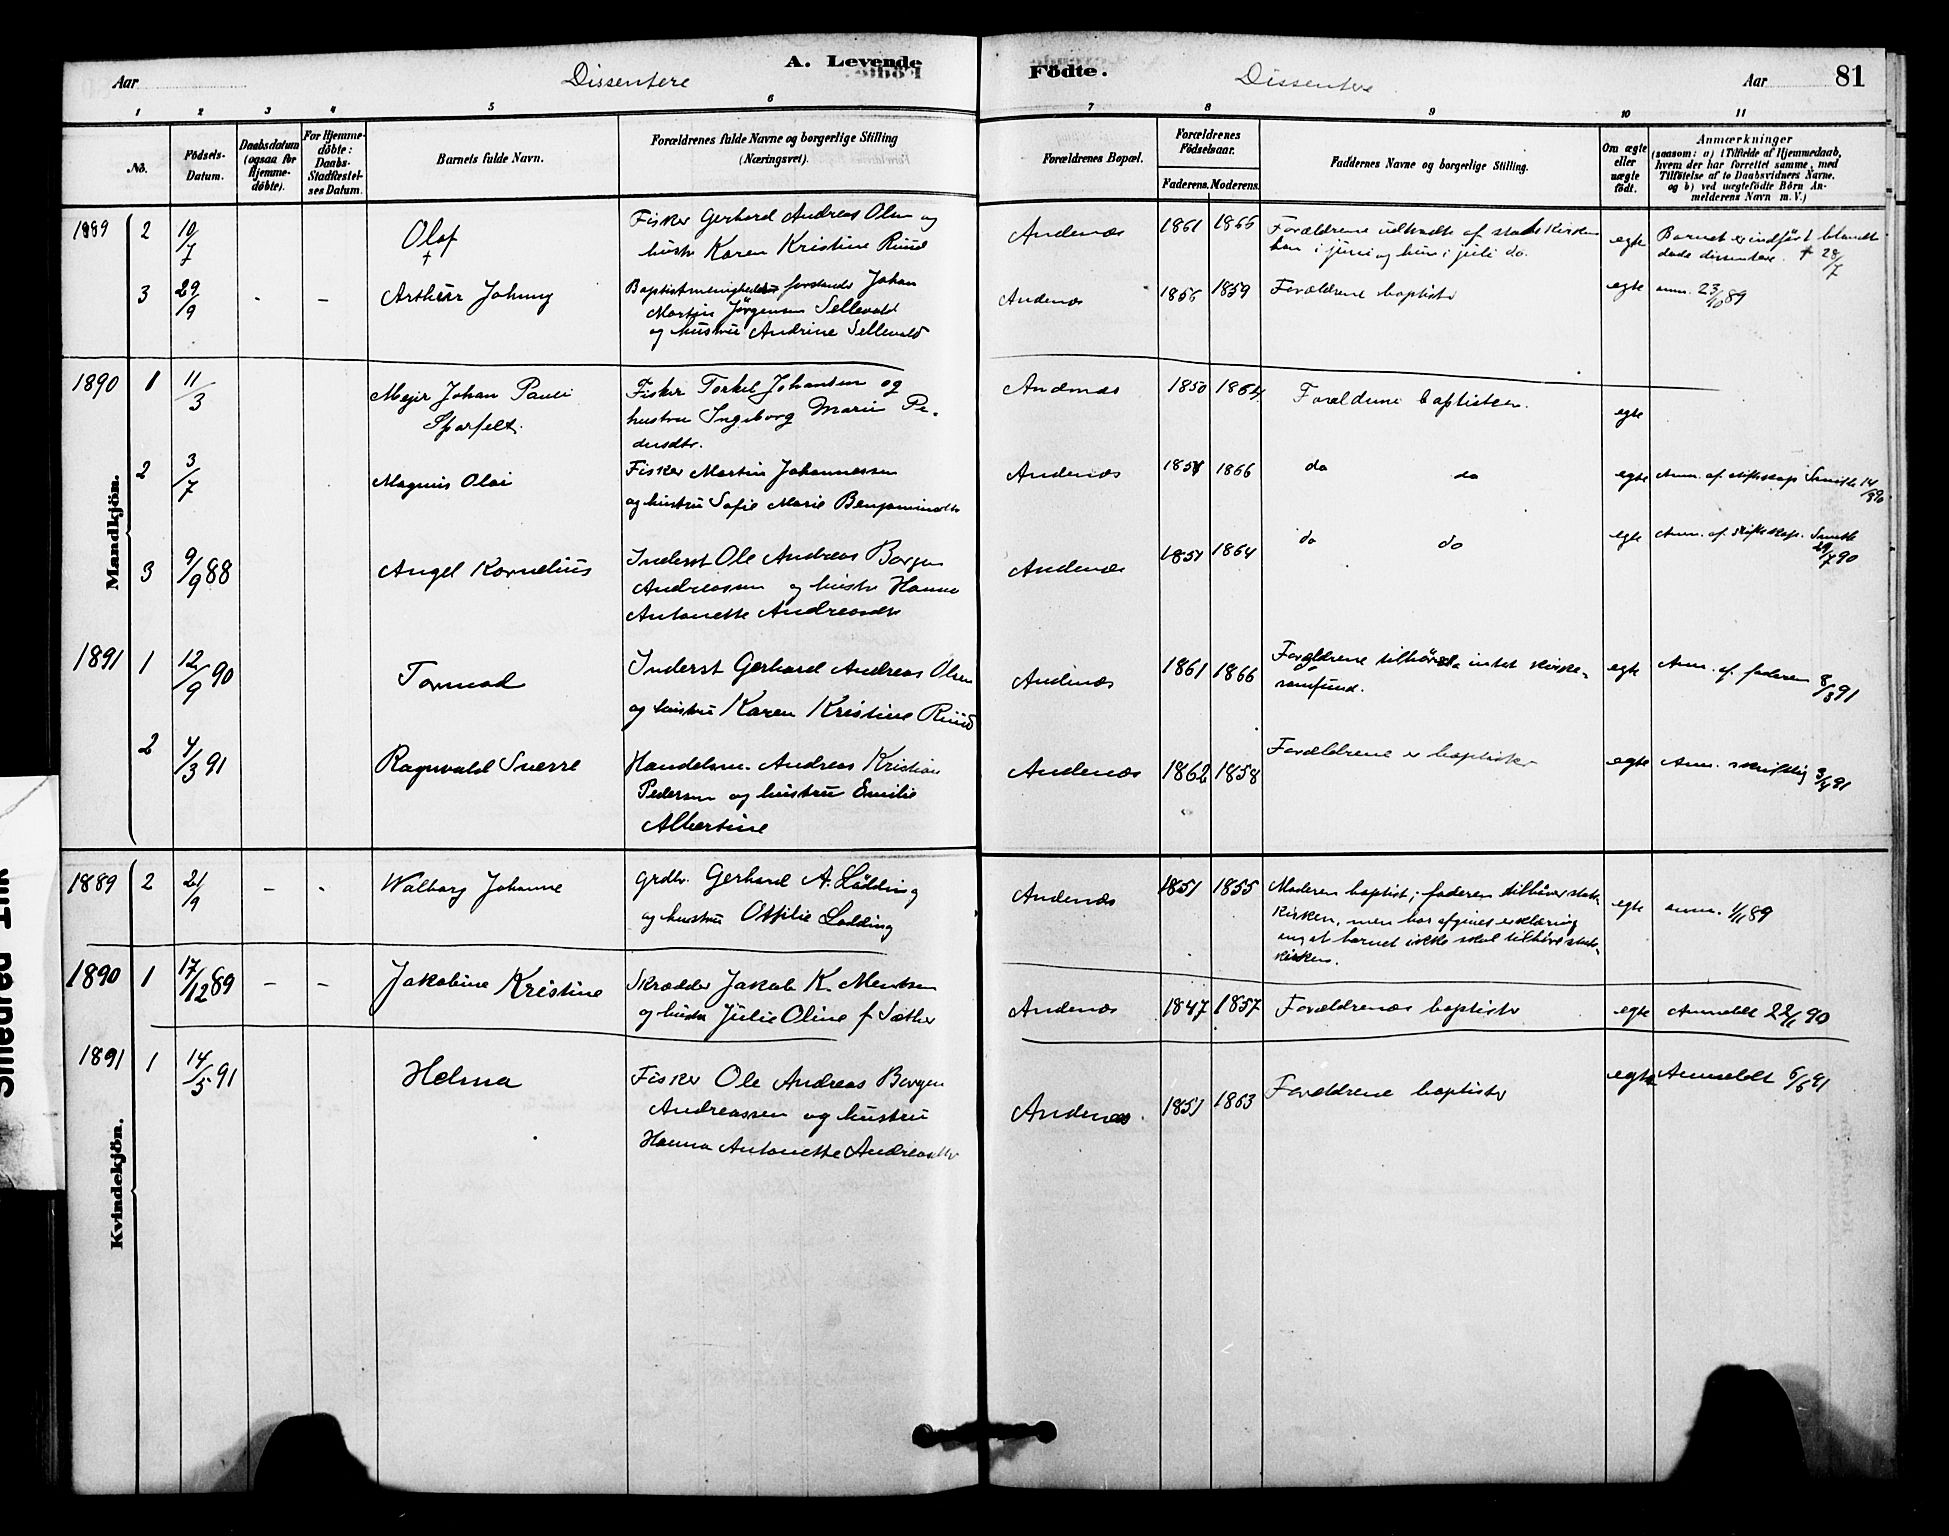 Aar Dissentere A. Levende
Födte. Dissentere Aar 81
1 2 3 4 5 6
7 8 9 10 11
No.
Födsels-
Datum.
Daabsdatum
(ogsaa for
Hjemme-
döbte).
For Hjemme-
döbte:
Daabs-
Stadfæstel-
ses Datum.
Barnets fulde Navn.
Forældrenes fulde Navne og borgerlige Stilling
(Næringsvei).
Forældrenes Bopæl.
Forældrenes
Födselsaar.
Faderens. Moderens.
Faddernes Navne og borgerlige Stilling.
Om ægte
eller
uægte
födt.
Anmærkninger
(saasom: a) i Tilfælde af Hjemmedaab,
hvem der har forrettet samme, med
Tilföielse af to Daabsvidners Navne.
og b) ved uægtefödte Börn An-
melderens Navn m. V.)
Mandkjön.
1889 2 10/7 Olaf †
Fisker Gerhard Andreas Olsen og
hustr Karen Kristine Ruud
Andenæs 1861 1866
Forældrene udtraadte af statskirken
han i juni og hun i juli do.
egte
Barnet er indført blandt
døde dissentere. † 28/7
3 29/9 - - Arthur Johnny
Baptistmenigheds forstander Johan
Martin Jørgensen Sellevold
og hustru Andrine Sellevold
Andenæs 1856 1859 Forældrene baptister egte anm. 23/10 89
1890 1 11/3 Mejer Johan Pauli
Sparfelt.
Fisker Torkel Johansen og
hustru Ingeborg Marie Pe-
dersdtr.
Andenæs 1850 1864 Forældrene baptister. egte
2 3/7 Magnus Olai
Fisker Martin Johannessen
og hustru Sofie Marie Benjaminsdtr
Andenæs 1858 1866 do do egte Anm. af skifteskap. Smith 14/8 90
3 9/9 88 Angel Kornelius
Inderst Ole Andreas Borgen
Andreassen og hustr Hanna
Antonette Andreasdtr
Andenæs 1851 1864 do do egte Anm. af skifteskap. Smith
29/7 90
1891 1 12/9 90 Tormod
Inderst Gerhard Andreas Olsen
og hustru Karen Kristine Ruud
Andenæs 1861 1866
Forældrene tilhører intet kirke-
samfund.
egte Anm. af faderen 8/3 91
2 4/3 91 Ragnvald Sverre
Handelsm. Andreas Kristian
Pedersen og hustru Emilie
Albertine
Andenæs 1862 1858 Forældrene er baptister egte Anm. skriftlig 3/4 91
Kvindekjön.
1889 2 21/9 - - Walborg Johanne
grdbr. Gerhard A. Lödding
og hustru Ottilie Lodding
Andenæs 1851 1855
Moderen baptist; faderen tilhører stats-
kirken, men har afgivet erklæring
om at barnet ikke skal tilhøre stats-
kirken.
egte anm. 1/11 89
1890 1 17/12 89 - - Jakobine Kristine
Skrædder Jakob K. Mentsen
og hustru Julie Oline f Sæther
Andenæs 1847 1857 Forældrenes baptister egte Anmeldt 22/1 90
1891 1 14/5 91 Helma
Fisker Ole Andreas Borgen
Andreassen og hustru
Hanna Antonette Andreasdtr
Andenæs 1851 1863 Forældrene baptister egte Anmeldt 6/6 91